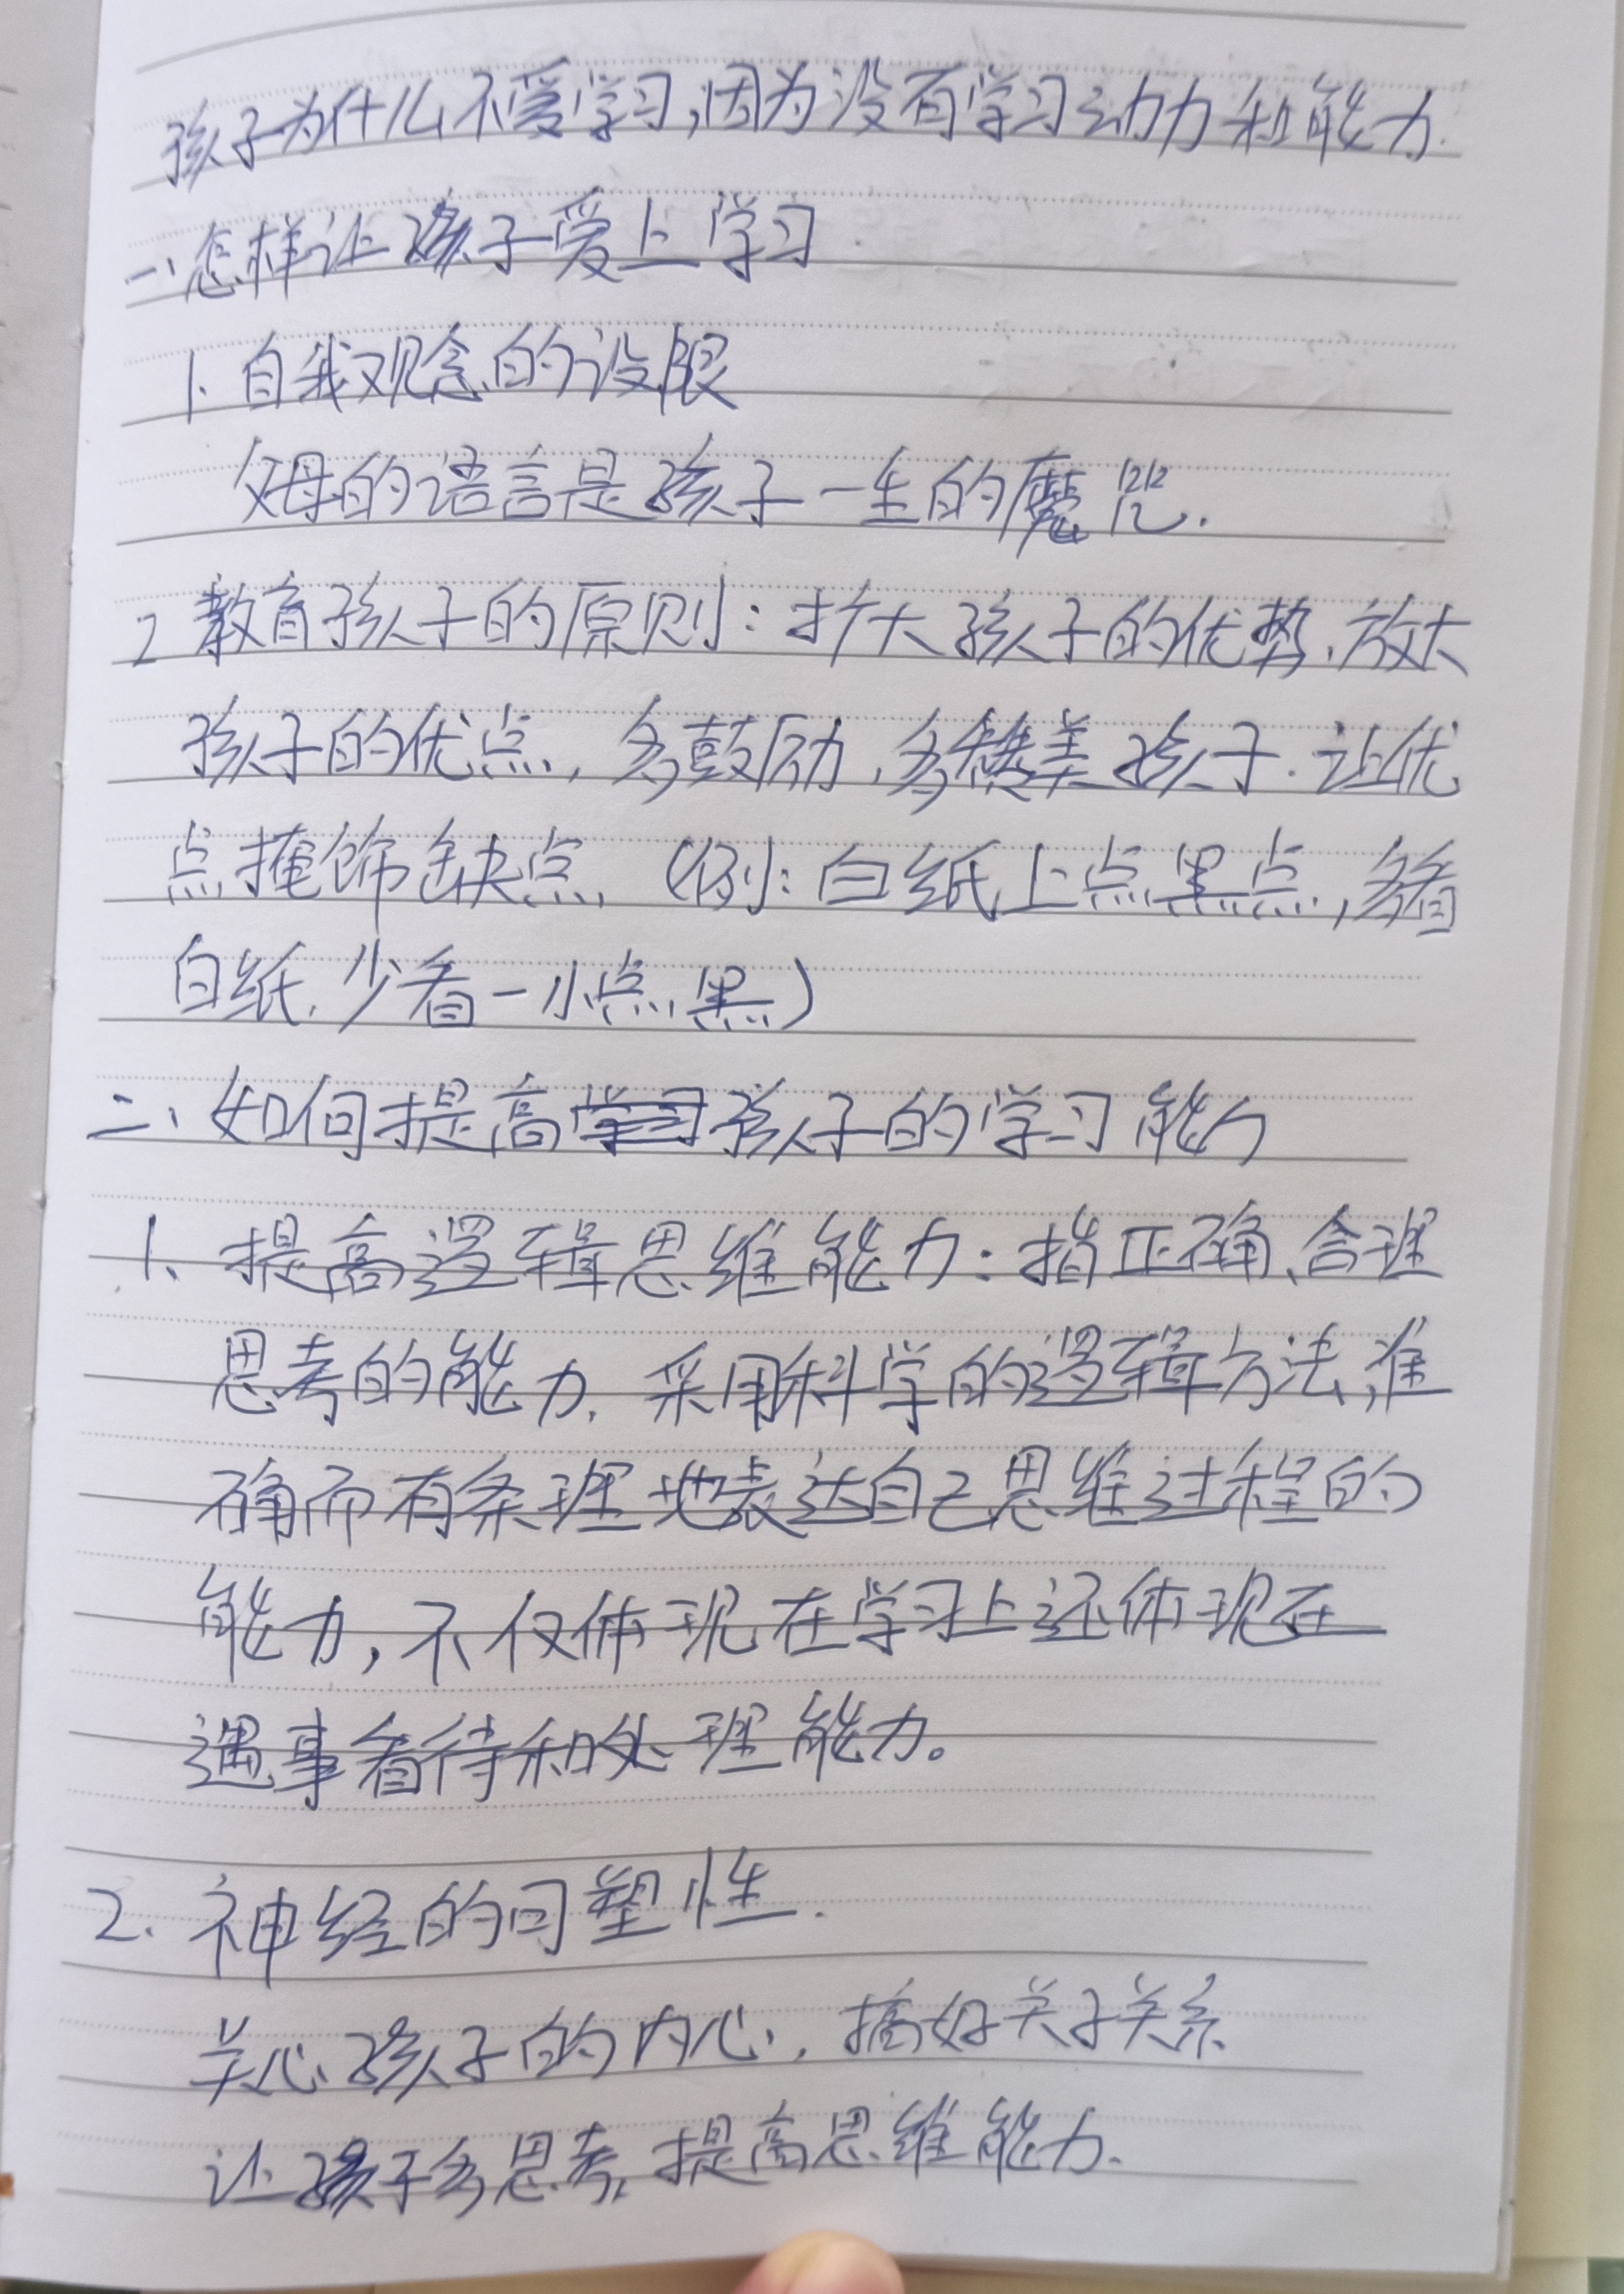 孩子为什么不爱学习，因为没有学习动力和能力.
一、怎样让孩子爱上学习.
1. 自我观念的设限
父母的语言是孩子一生的魔咒.
2 教育孩子的原则：扩大孩子的优势、放大
孩子的优点，多鼓励，多赞美孩子. 让优
点掩饰缺点（例：白纸上点黑点，多看
白纸、少看一小点黑）
二、如何提高孩子的学习能力
1、提高逻辑思维能力：指正确、合理
思考的能力. 采用科学的逻辑方法，准
确而有条理地表达自己思维过程的
能力，不仅体现在学习上还体现在
遇事看待和处理能力。
2. 神经的可塑性.
关心孩子的内心，搞好关子关系
让孩子多思考，提高思维能力.